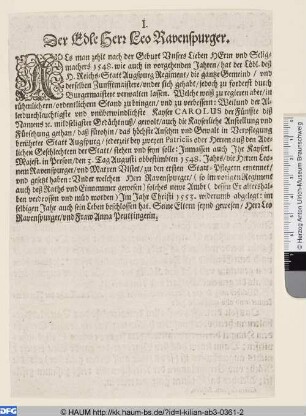 I.
Der Edle Herr Leo Ravenspurger.
ALs man zehlt nach der Geburt Unsers Lieben HErrn und Selig-
machers 1548. wie auch in vorgehenden Jahren / hat der Lobl. deß
H. Reichs-Statt Augspurg Regiment / die gantze Gemeind / und
derselben Zunfftmaister / under sich gehabt / jedoch zu forderst durch
Burgermaister verwalten lassen. Welche wolt zu regieren aber / in
rühmlichern / ordentlichern Stand zu bringen / und zu verbessern: Weiland der Al-
lerdurchleuchtigste und unüberwindlichste Kayser CAROLUS der Fünffte diß
Namens &c. mildseligster Gedächtnuß / gewolt / auch die Kayserliche Anstellung und
Fürsehung gethan / daß fürohin / das höchste Ansehen und Gewalt in Verpflegung
berührter Statt Augspurg / jederzeit bey zweyen Patriciis oder Herren auß den Ade-
lichen Geschlechtern der Statt / stehen und seyn solle: Inmassen auch Ihr Kayserl.
Majest. in Person / den 3. Tag Augusti obbestimbten 1548. Jahrs / die Herren Leo-
nem Ravenspurger / und Marxen Ulstet / zu den ersten Statt-Pflegern ernennet /
und gesetzt haben: Under welchen Herr Ravenspurger / so im vorigen Regiment
auch deß Raths und Einnemmer gewesen / solches newe Ambt (dessen Er alters hal-
ben verdrossen und müd worden) Im Jahr Christi 1555. widerumb abgelegt: im
selbigen Jahr auch sein Leben beschlossen hat. Seine Eltern seynd gewesen / Herr Leo
Ravenspurger / und Fraw Anna Peutingerin.
Herzog Anton Ulrich-Museum Braunschweig
DFG
© HAUM http://kk.haum-bs.de/?id=l-kilian-ab3-0361-2